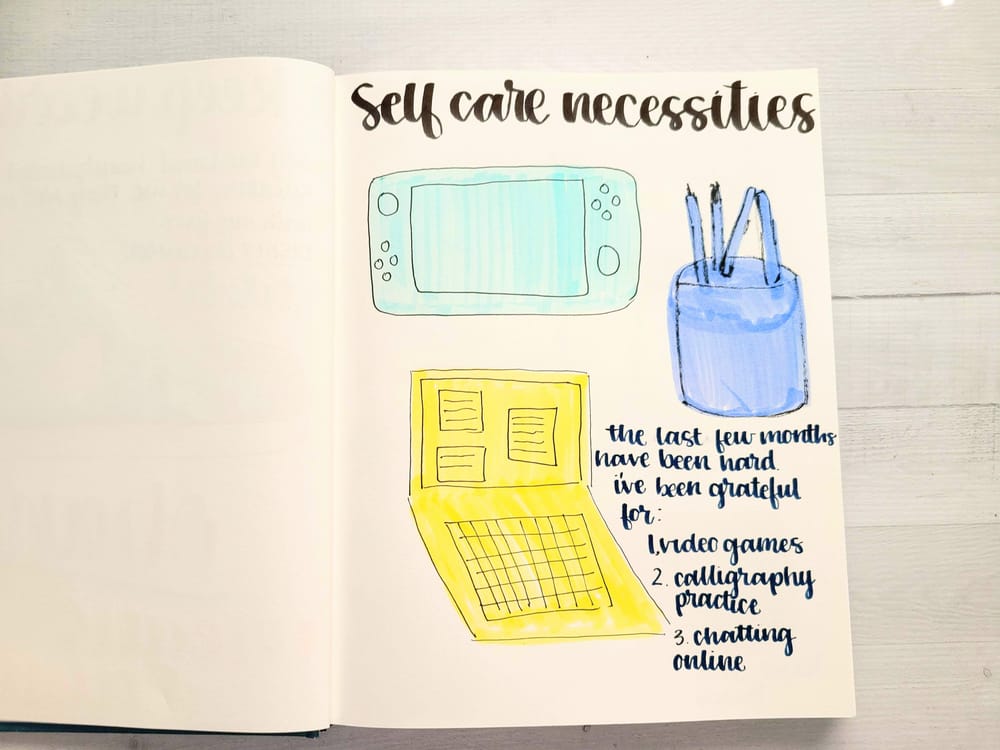 Self care necessities
the last few months
have been hard.
i've been grateful
for:
1, video games
2. calligraphy
practice
3. chatting
online